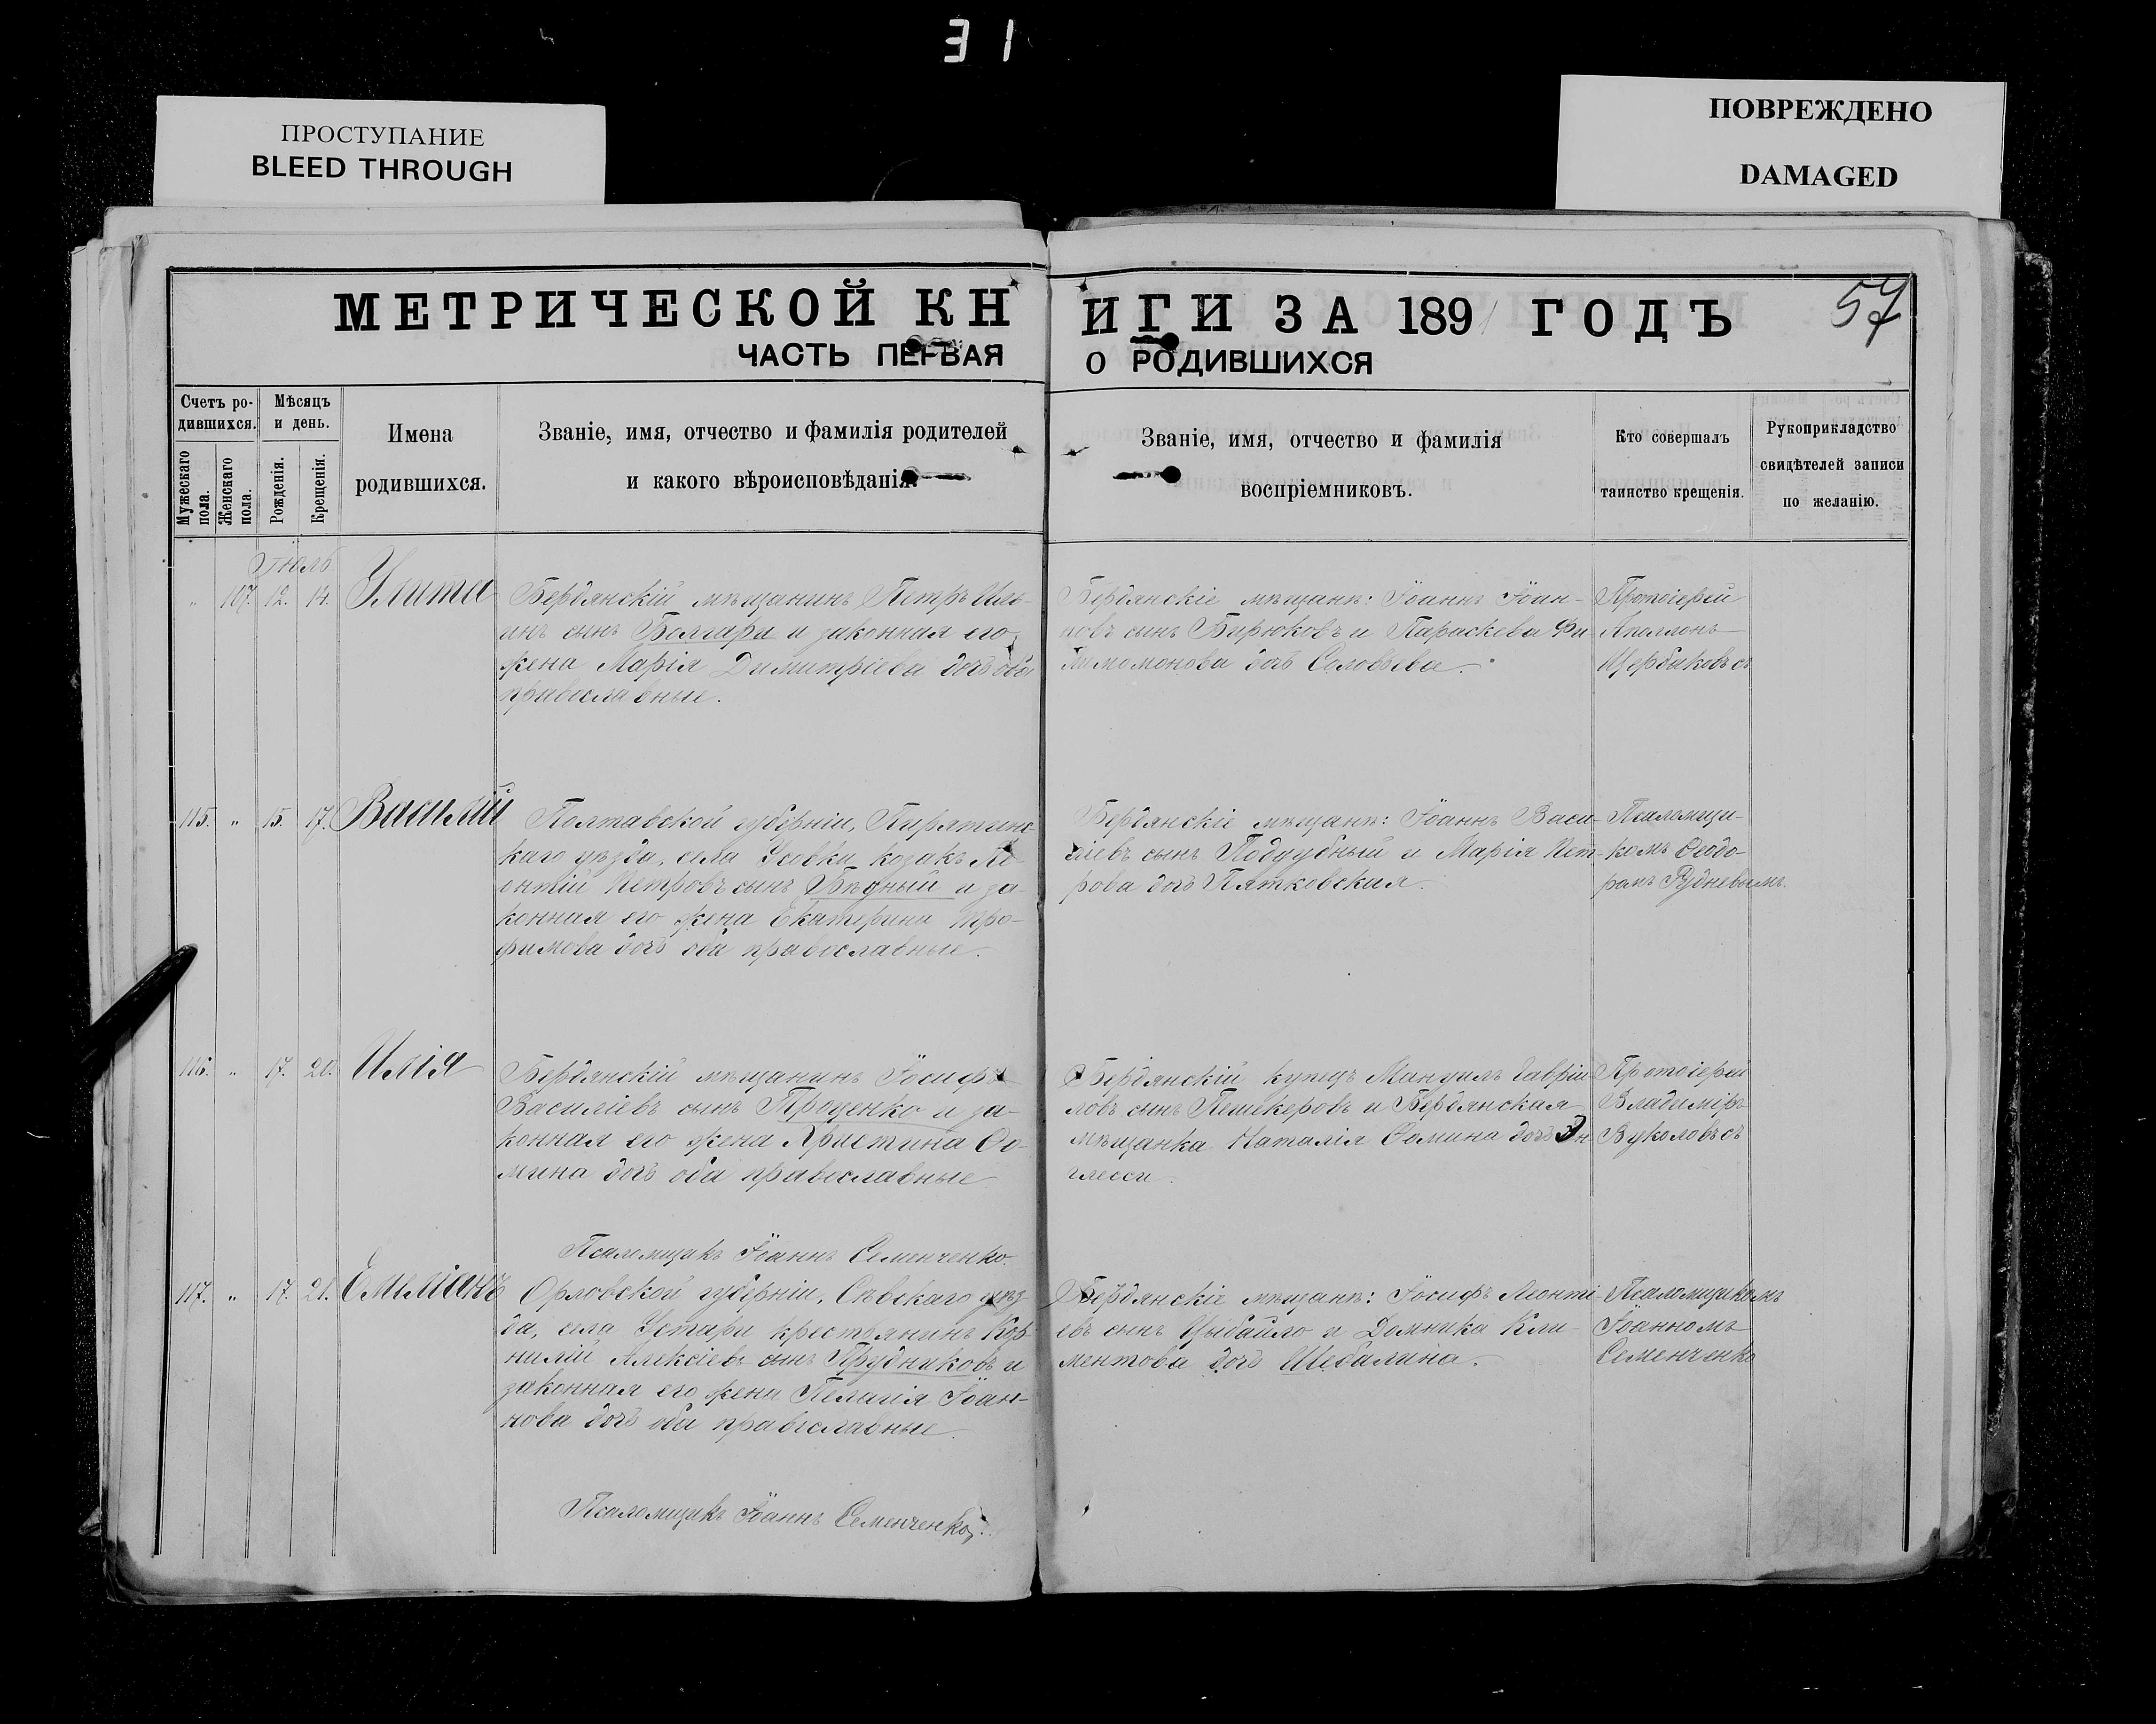 31
ПРОСТУПАНИЕ
BLEED THROUGH
ПОВРЕЖДЕНО
DAMAGED
МЕТРИЧЕСКОЙ КН
ИГИ ЗА 1891 ГОДЪ
57
ЧАСТЬ ПЕРВАЯ
О РОДИВШИХСЯ
Счетъ ро-
дившихся.
Мужескаго
пола.
Женскаго
пола.
Мѣсяцъ
и день.
Рожденія.
Крещенія.
Имена
родившихся.
Званіе, имя, отчество и фамилія родителей
и какого вѣроисповѣданія.
Званіе, имя, отчество и фамилія
воспріемниковъ.
Кто совершалъ
таинство крещенія.
Рукоприкладство
свидѣтелей записи
по желанію.
Іюль
" 107. 12. 14. Улита
Бердянскій мѣщанинъ Петръ Иль-
инъ сынъ Болгари и законная его
жена Марія Димитріева дочь оба
православные.
Бердянскіе мѣщане: Іоаннъ Іоан-
новъ сынъ Бирюковъ и Параскева Фи
лимонова дочь Соловьева.
Протоіерей
Аполлонъ
Щербаковъ съ
115. " 15. 17. Василій
Полтавской губерніи, Пирятинс-
каго уѣзда, села Усовки козакъ Ле-
онтій Петровъ сынъ Бѣдный и за-
конная его жена Екатерина Тро-
фимова дочь оба православные.
Бердянскіе мѣщане: Іоаннъ Васи-
ліевъ сынъ Поддубный и Марія Пет-
рова дочь Пятковская.
Псаломщи-
комъ Ѳеодо-
ромъ Рудневымъ.
116. " 17. 20. Илія
Бердянскій мѣщанинъ Іосифъ
Василіевъ сынъ Троценко и за-
конная его жена Христина Ѳо-
мина дочь оба православные
Бердянскій купецъ Мануилъ Гавріи
ловъ сынъ Пешекеровъ и Бердянская
мѣщанка Наталія Ѳомина дочь Эн
глесси.
Протоіерей
Владиміръ
Вуколовъ съ
Псаломщикъ Іоаннъ Семенченко.
117. " 17. 21. Емиліанъ
Орловской губерніи, Сѣвскаго уѣз
да, села Устари крестьянинъ Кор-
нилій Алексіевъ сынъ Прудниковъ и
законная его жена Пелагія Іоан-
нова дочь оба православные.
Бердянскіе мѣщане: Іосифъ Леонті-
евъ сынъ Цыбайло и Домника Кли-
ментова дочь Шебалина.
Псаломщикомъ
Іоанномъ
Семенченко
Псаломщикъ Іоаннъ Семенченко.